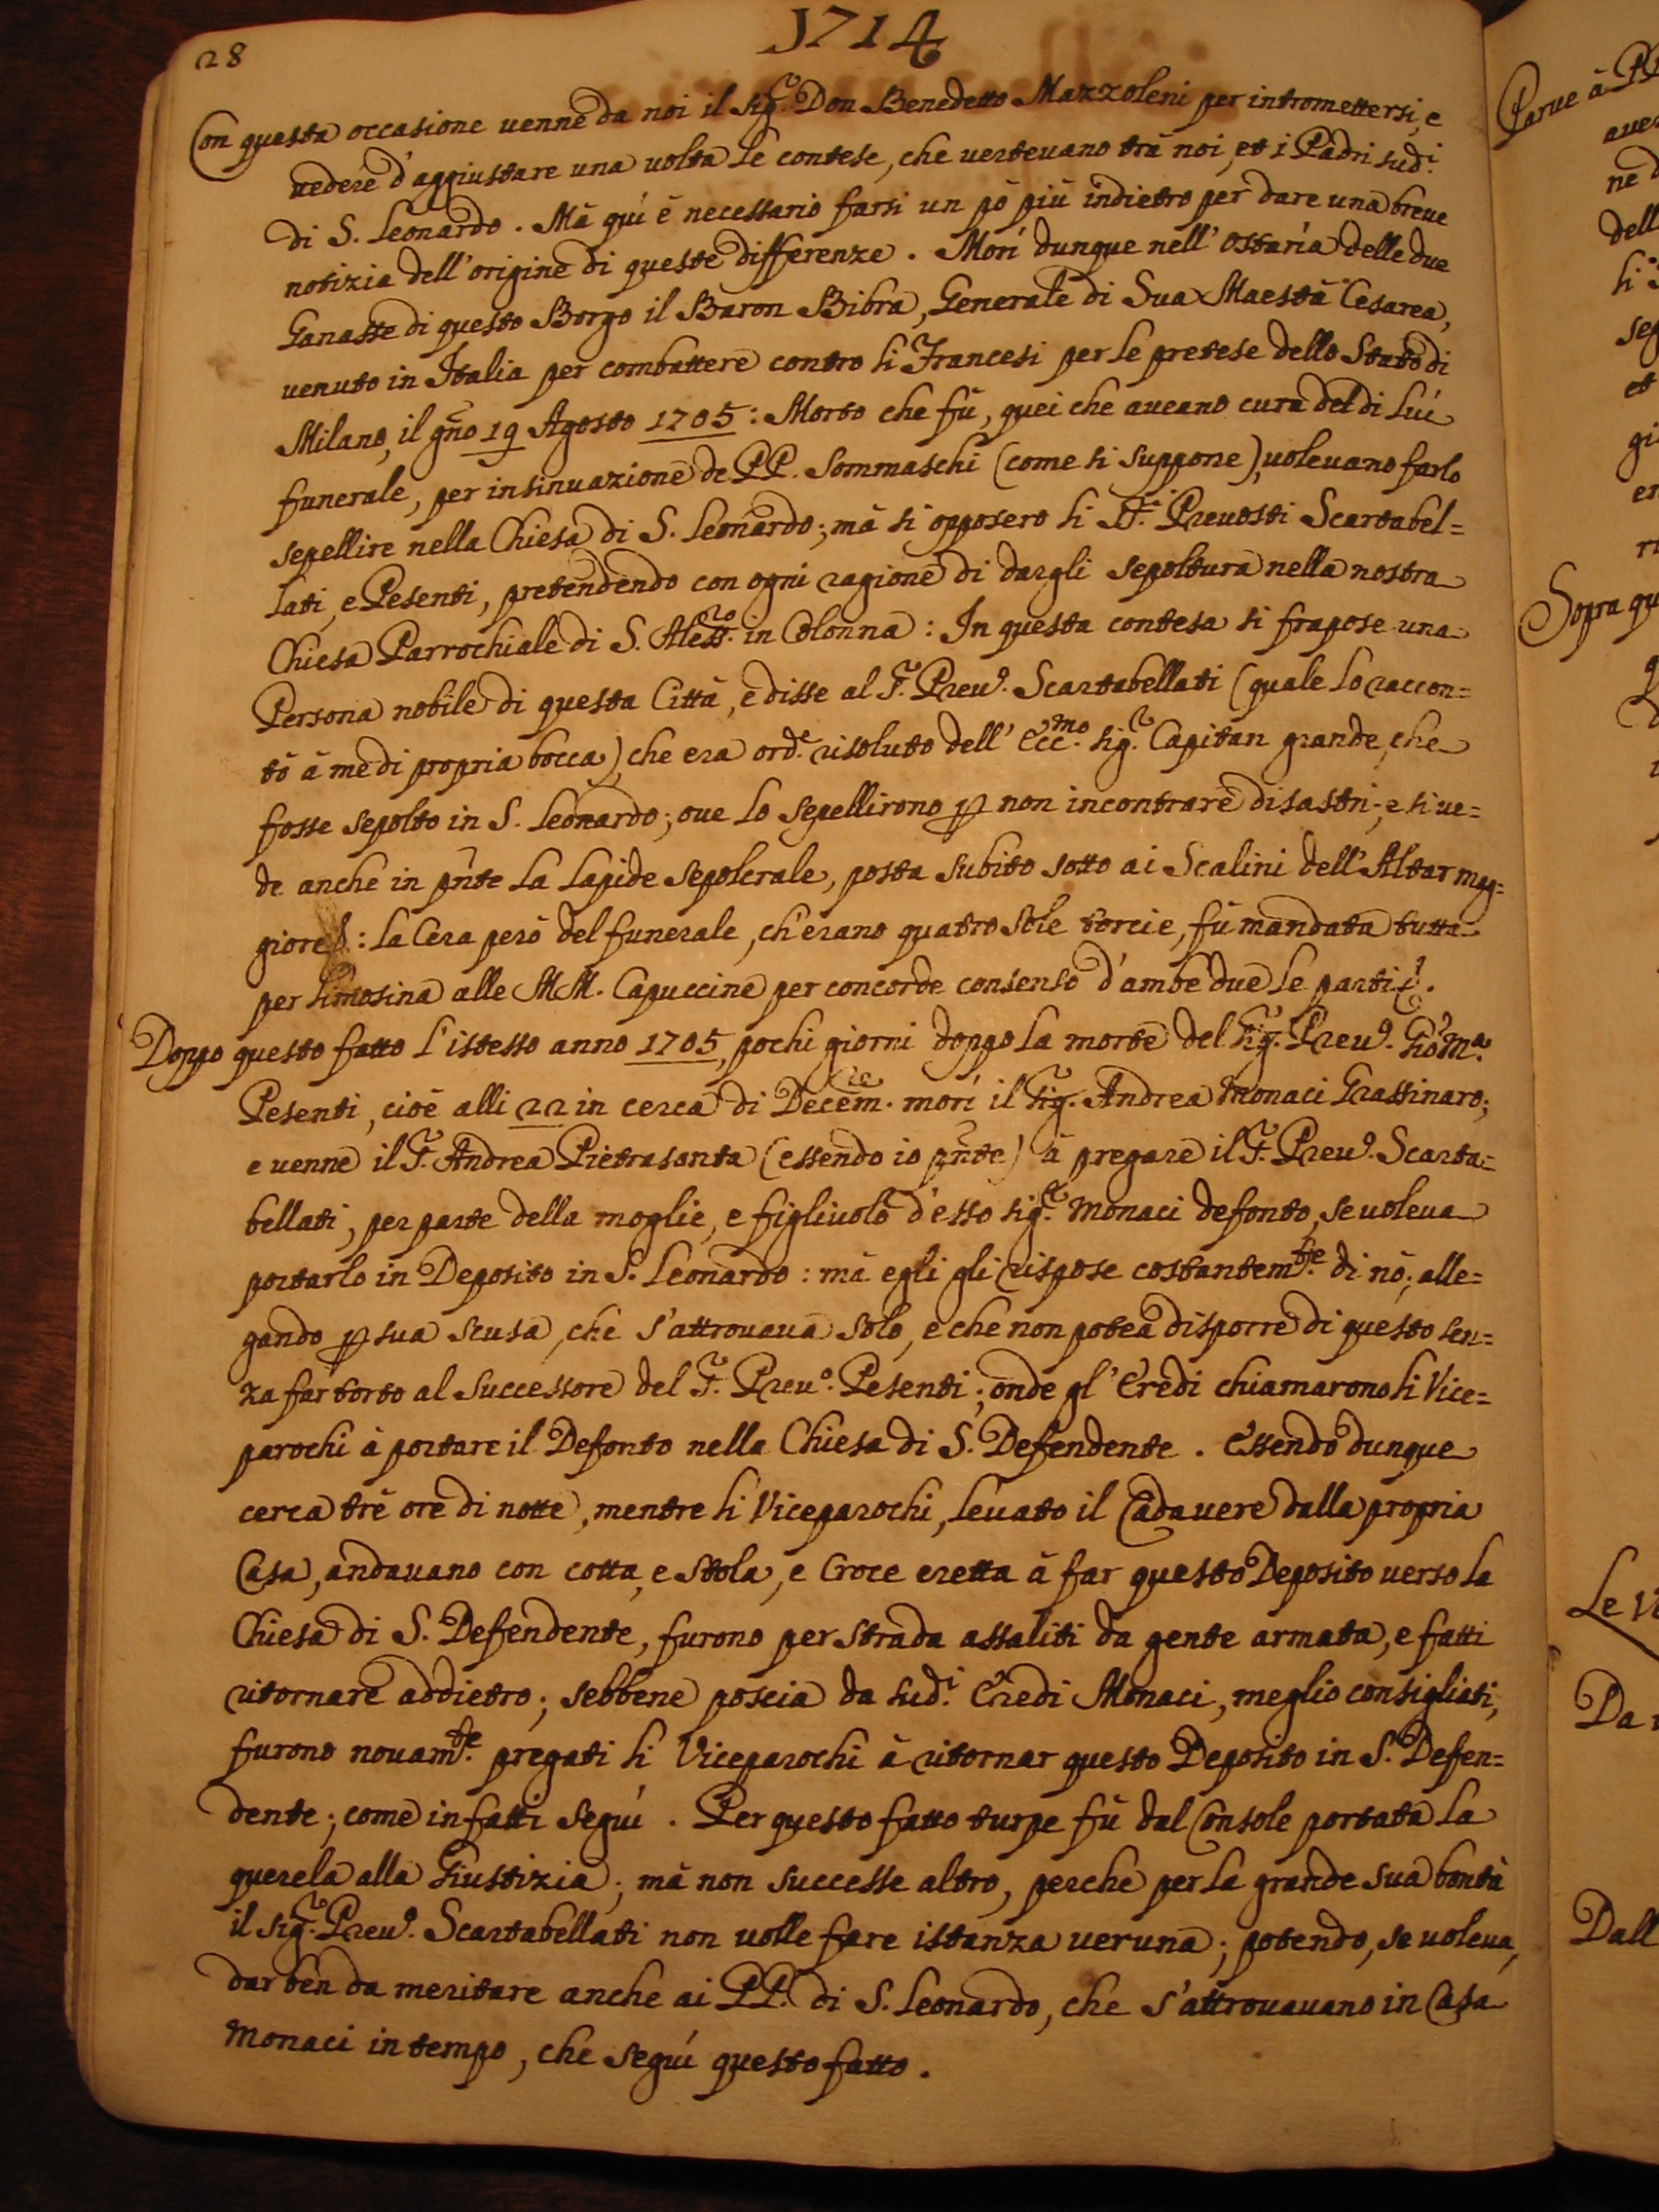 28
1714
Con questa occasione venne da noi il Sig.r Don Benedetto Mazzoleni per intromettersi, e
vedere d'aggiustare una volta le contese, che vertevano trà noi, et i Padri sud.i
di S. Leonardo. Mà quì è necessario farsi un pò più indietro per dare una breve
notizia dell'origine di queste differenze. Morì dunque nell'Ostarìa delle due
Ganasse di questo Borgo il Baron Bibra, Generale di Sua Maestà Cesarea,
venuto in Italia per combattere contro li Francesi per le pretese dello Stato di
Milano, il gño 19 Agosto 1705: Morto che fù, quei che aveano cura del di lui
funerale, per insinuazione de PP. Sommaschi (come si suppone), volevano farlo
sepellire nella Chiesa di S. Leonardo; mà si opposero li SS.ri Prevosti Scartabel=
lati, e Pesenti, pretendendo con ogni ragione di dargli sepoltura nella nostra
Chiesa Parrochiale di S. Aless.ro in Colonna: In questa contesa si frapose una
Persona nobile di questa Città, e disse al S.r Prev.o Scartabellati (quale lo raccon=
tò à me di propria bocca), che era ord.e risoluto dell'Ecc.mo Sig.r Capitan grande, che
fosse sepolto in S. Leonardo; ove lo sepellirono p non incontrare disastri; e si ve=
de anche in pñte la lapide sepolcrale, posta subito sotto ai Scalini dell'Altar mag=
giore: la Cera però del funerale, ch'erano quatro sole torcie, fù mandata tutta
per limosina alle MM. Capuccine per concorde consenso d'ambe due le parti.
Doppo questo fatto l'istesso anno 1705, pochi giorni doppo la morte del Sig.r Prev.o Gio: M.a
Pesenti, cioè alli 22 in cerca di Decem.re morì il Sig.r Andrea Monaci Grassinaro;
e venne il S.r Andrea Pietrasanta (essendo io pñte) à pregare il S.r Prev.o Scarta=
bellati, per parte della moglie, e figlivolo d'esso Sig.r Monaci defonto, se voleva
portarlo in Deposito in S. Leonardo: mà egli gli rispose costantem.te di nò; alle=
gando p sua scusa, che s'attrovava solo, e che non potea disporre di questo sen=
za far torto al Successore del S.r Prev.o Pesenti; onde gl'Eredi chiamarono li Vice=
parochi à portare il Defonto nella Chiesa di S. Defendente. Essendo dunque
cerca trè ore di notte, mentre li Viceparochi, levato il Cadavere dalla propria
Casa, andavano con cotta, e Stola, e Croce eretta à far questo Deposito verso la
Chiesa di S. Defendente, furono per strada assaliti da gente armata, e fatti
ritornare addietro; sebbene poscia da sud.i Eredi Monaci, meglio consigliati,
furono novam.te pregati li Viceparochi à ritornar questo Deposito in S. Defen=
dente; come in fatti seguì. Per questo fatto turpe fù dal Console portata la
querela alla Giustizia; mà non successe altro, perche per la grande sua bontà
il Sig.r Prev.o Scartabellati non volle fare istanza veruna; potendo, se voleva,
dar ben da meritare anche ai PP. di S. Leonardo, che s'attrovavano in Casa
Monaci in tempo, che seguì questo fatto.
Parve à
Sopra qu
Da
Dall